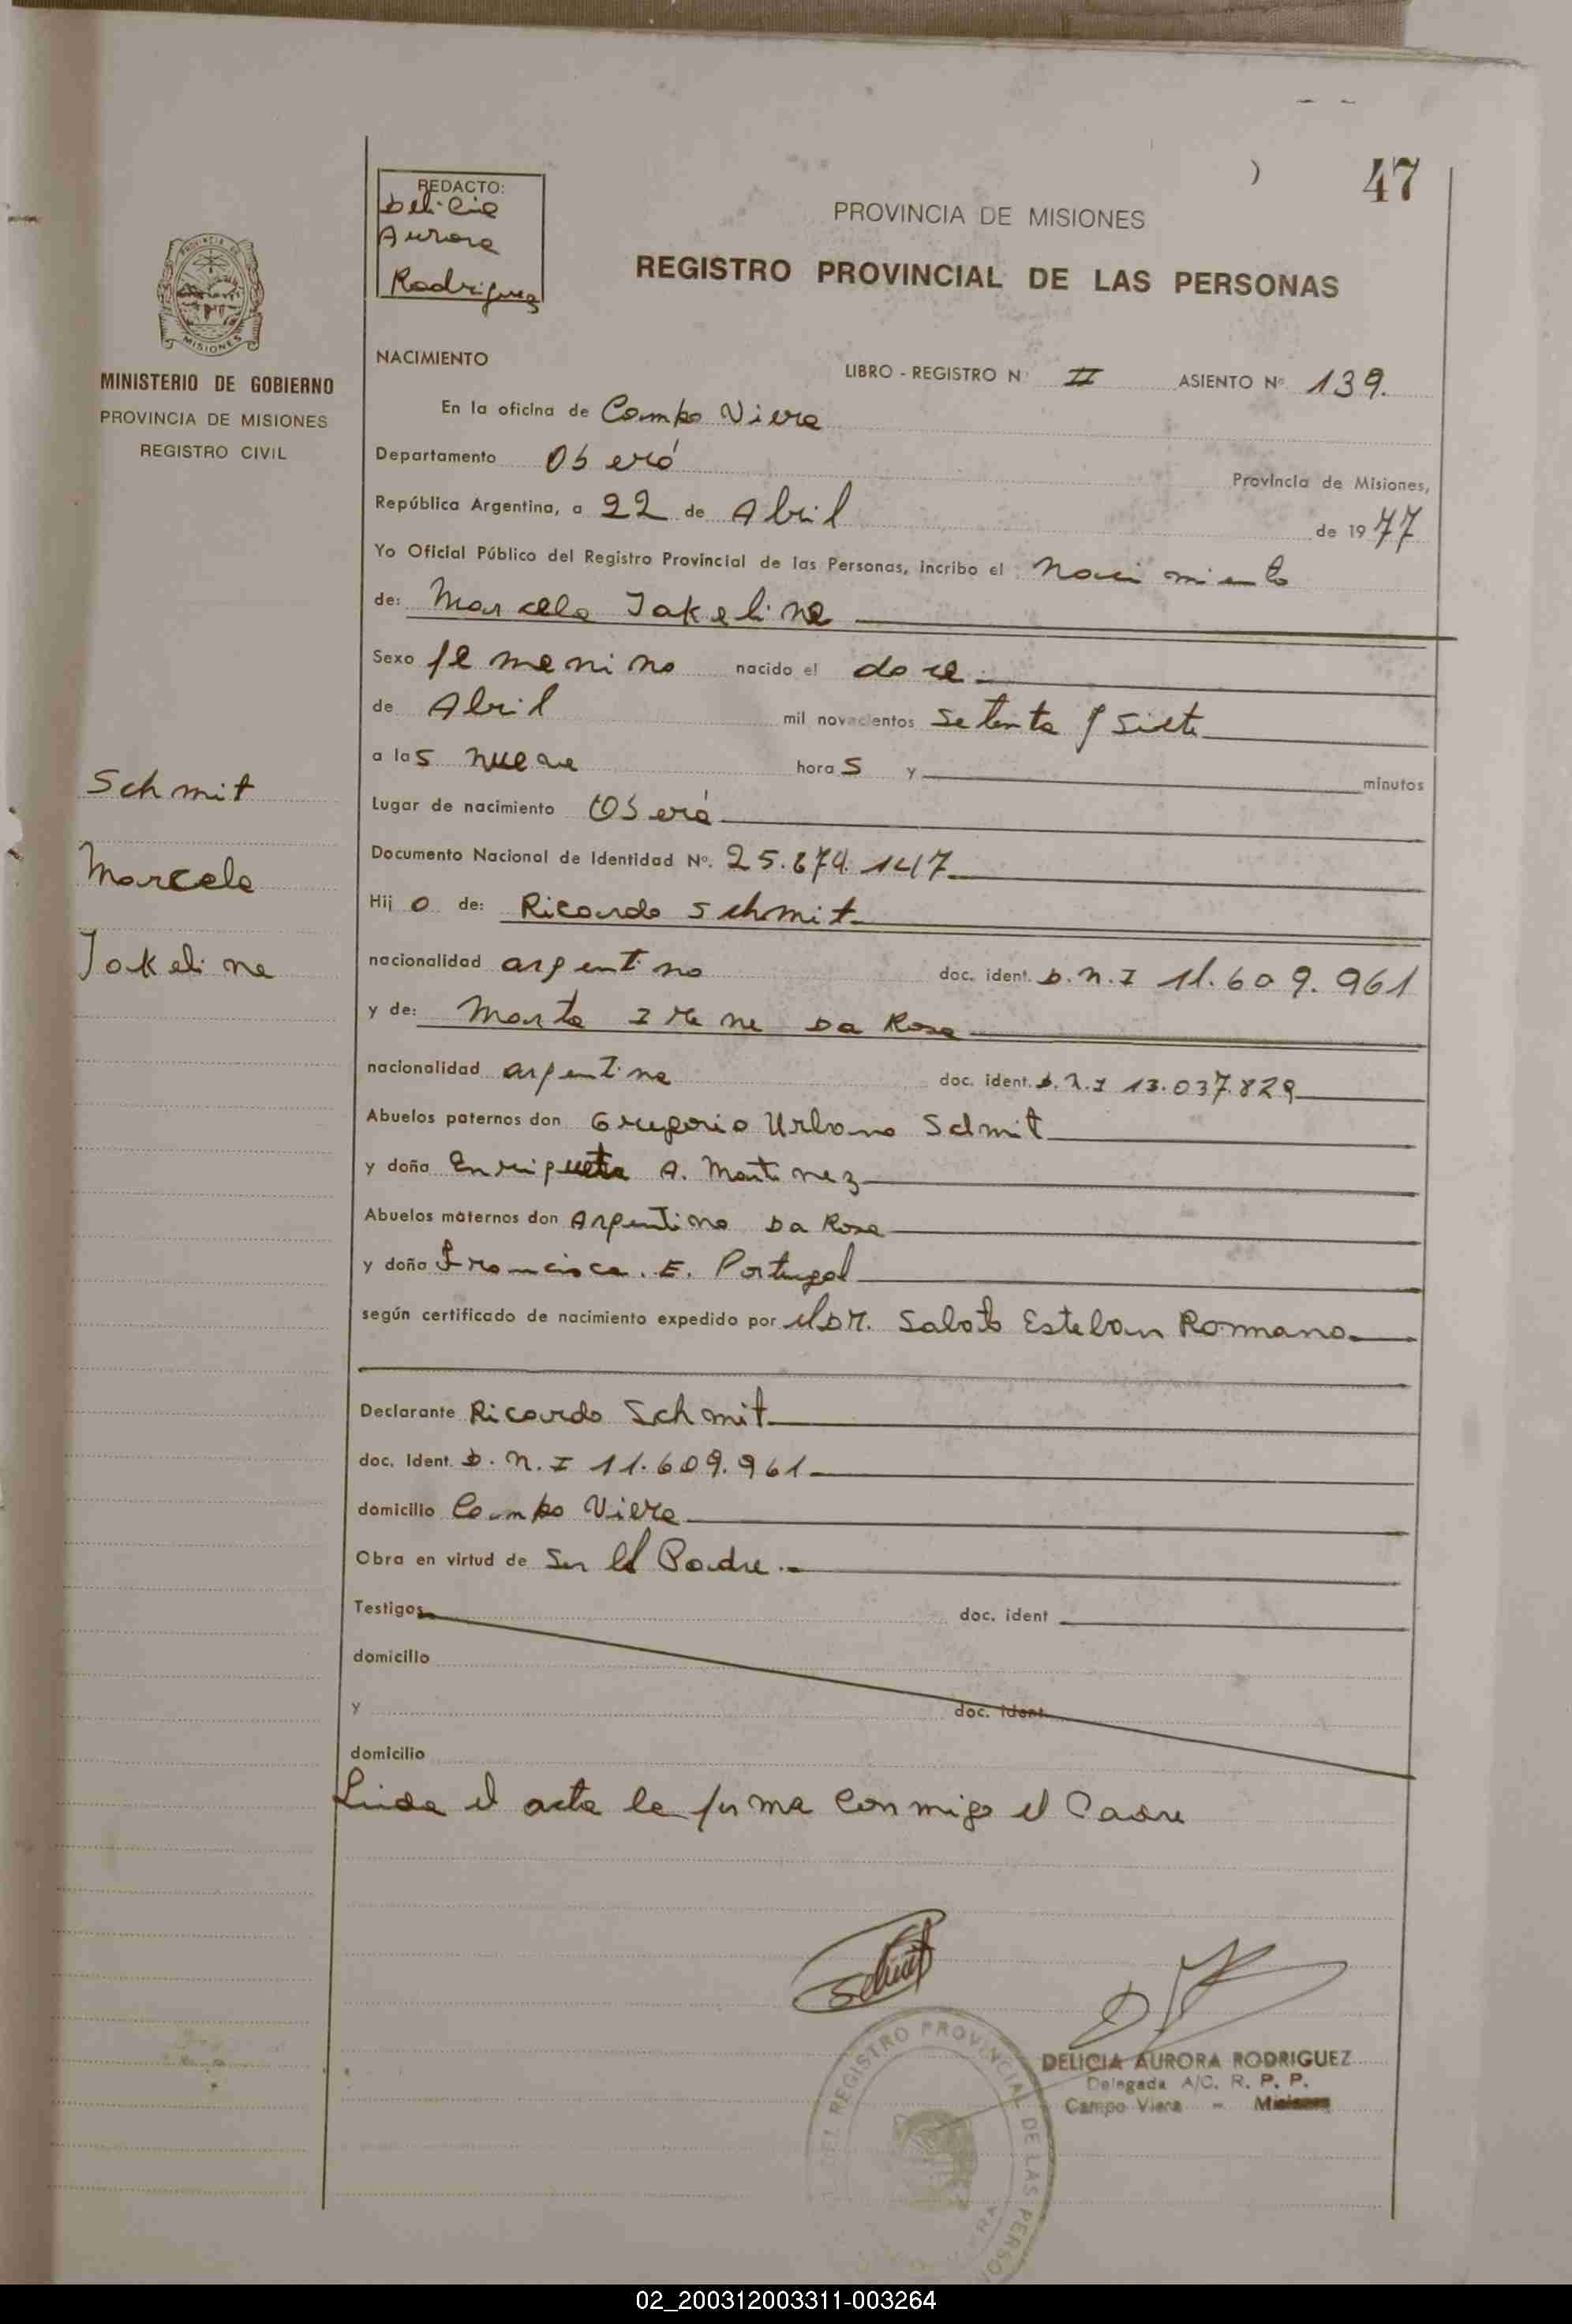 47
REDACTO:
Delicia
Aurora
Rodriguez
PROVINCIA DE MISIONES
REGISTRO PROVINCIAL DE LAS PERSONAS
MISIONES
MINISTERIO DE GOBIERNO
PROVINCIA DE MISIONES
REGISTRO CIVIL
Schmit
Marcela
Jakeline
NACIMIENTO
LIBRO - REGISTRO Nº II ASIENTO Nº 139.
En la oficina de Campo Viera
Departamento Oberá Provincia de Misiones,
República Argentina, a 22 de Abril de 1977
Yo Oficial Público del Registro Provincial de las Personas, incribo el Nacimiento
de: Marcela Jakeline
Sexo femenino nacido el doce
de Abril mil novecientos setenta y siete
a las nueve horas y minutos
Lugar de nacimiento Oberá
Documento Nacional de Identidad Nº. 25.874.147
Hijo de: Ricardo Schmit
nacionalidad argentino doc. ident. D.N.I 11.609.961
y de: Marta Irene Da Rosa
nacionalidad argentina doc. ident. D.N.I 13.037.829
Abuelos paternos don Gregorio Urbano Schmit
y doña Enriqueta A. Martinez
Abuelos maternos don Argentino Da Rosa
y doña Francisca. E. Portugal
según certificado de nacimiento expedido por el DR. Sabato Esteban Romano
Declarante Ricardo Schmit
doc. Ident. D.N.I 11.609.961
domicilio Campo Viera
Obra en virtud de ser el Padre.
Testigos doc. ident
domicilio
y doc. ident.
domicilio
Leida el acta la firma conmigo el Padre
Schmit
DEL REGISTRO PROVINCIAL DE LAS PERSO
DELICIA AURORA RODRIGUEZ
Delegada A/C. R. P. P.
Campo Viera - Misiones
02_200312003311-003264